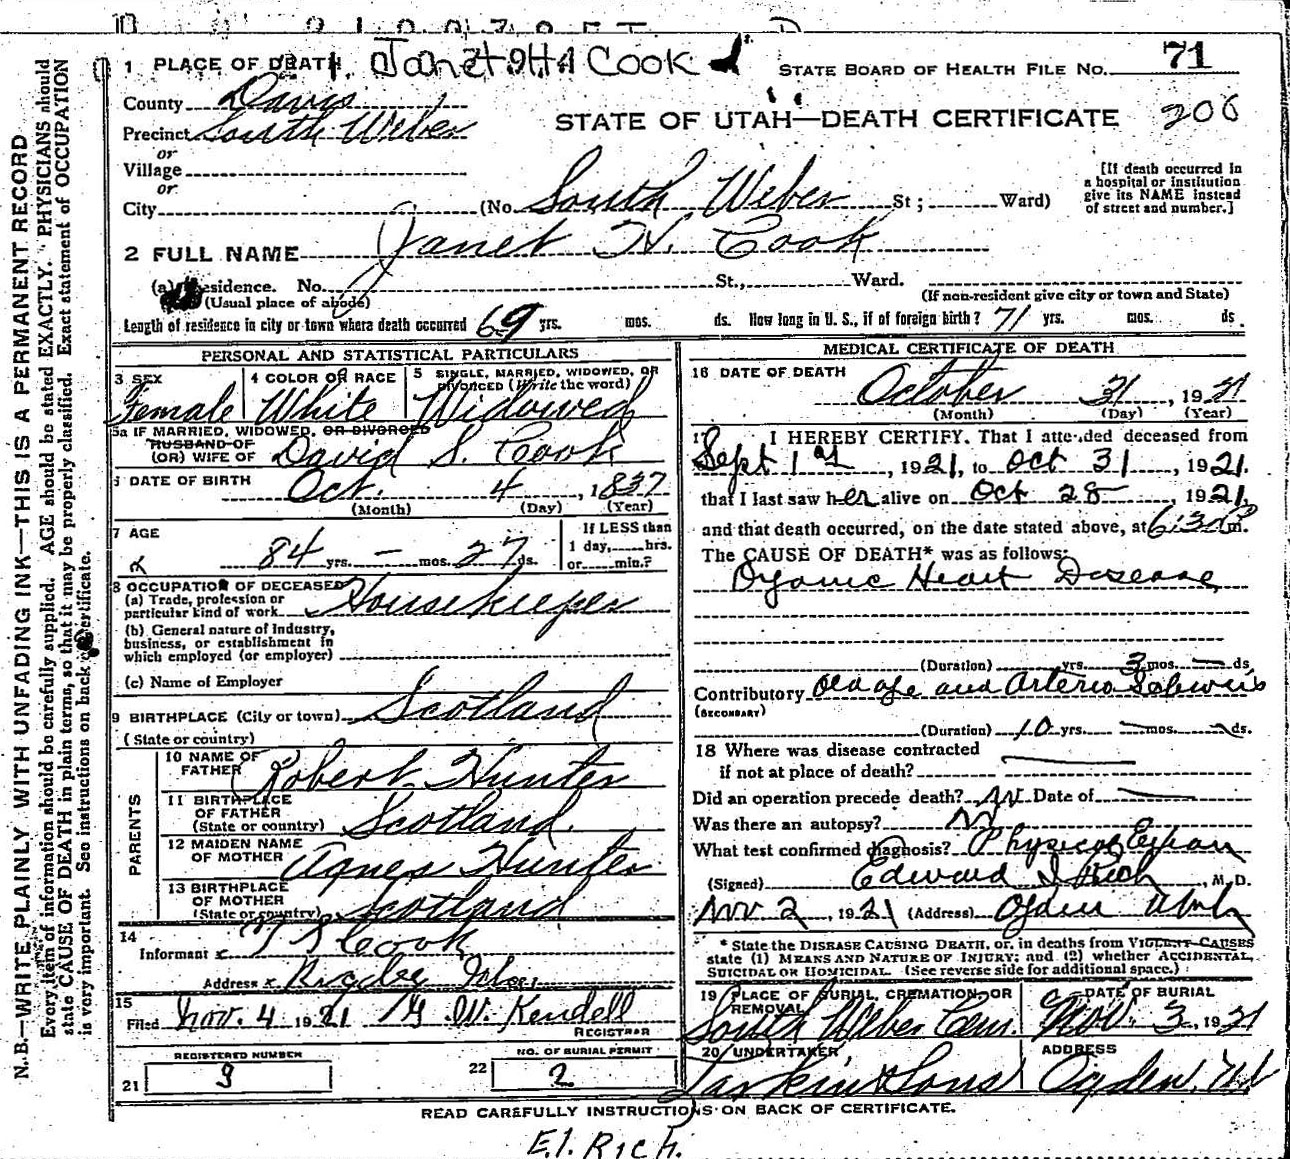 1 PLACE OF DEATH Janet Cook
STATE BOARD OF HEALTH FILE No. 71
County Davis
206
STATE OF UTAH—DEATH CERTIFICATE
Precinct South Weber
or
Village
or
City (No. South Weber St; Ward)
[If death occurred in a hospital or institution give its NAME instead of street and number.]
2 FULL NAME Janet H. Cook
(a) Residence. No. St., Ward.
(Usual place of abode) (If non-resident give city or town and State)
Length of residence in city or town where death occurred 69 yrs. mos. ds. How long in U. S., if of foreign birth? 71 yrs. mos. ds.
PERSONAL AND STATISTICAL PARTICULARS
3 SEX Female
4 COLOR OR RACE White
5 SINGLE, MARRIED, WIDOWED, OR DIVORCED (Write the word) Widowed
5a IF MARRIED, WIDOWED, OR DIVORCED
HUSBAND OF
(OR) WIFE OF David S. Cook
6 DATE OF BIRTH Oct. 4, 1837
(Month) (Day) (Year)
7 AGE
84 yrs. — mos. 27 ds.
If LESS than
1 day, hrs.
or min.?
8 OCCUPATION OF DECEASED
(a) Trade, profession or particular kind of work Housekeeper
(b) General nature of industry,
business, or establishment in
which employed (or employer)
(c) Name of Employer
9 BIRTHPLACE (City or town) Scotland
(State or country)
PARENTS
10 NAME OF FATHER Robert Hunter
11 BIRTHPLACE OF FATHER (State or country) Scotland.
12 MAIDEN NAME OF MOTHER Agnes Hunter
13 BIRTHPLACE OF MOTHER (State or country) Scotland
14
Informant Cook
Address Rigby Idaho
15
Filed Nov. 4 1921 W. Kendell
REGISTRAR
REGISTERED NUMBER
21 9
NO. OF BURIAL PERMIT
22 2
MEDICAL CERTIFICATE OF DEATH
16 DATE OF DEATH
October 31, 1921
(Month) (Day) (Year)
17 I HEREBY CERTIFY, That I attended deceased from
Sept 1st, 1921, to Oct 31, 1921.
that I last saw her alive on Oct 28, 1921,
and that death occurred, on the date stated above, at 6:30 P m.
The CAUSE OF DEATH* was as follows:
Organic Heart Disease
(Duration) yrs. 3 mos. — ds.
Contributory Old age and Arterio Sclerosis
(SECONDARY)
(Duration) 10 yrs. — mos. — ds.
18 Where was disease contracted
if not at place of death? —
Did an operation precede death? No Date of —
Was there an autopsy? No
What test confirmed diagnosis? Physical Exam
(Signed) Edward I Rich, M. D.
Nov 2, 1921 (Address) Ogden Utah
* State the DISEASE CAUSING DEATH, or, in deaths from VIOLENT CAUSES
state (1) MEANS AND NATURE OF INJURY; and (2) whether ACCIDENTAL,
SUICIDAL OR HOMICIDAL. (See reverse side for additional space.)
19 PLACE OF BURIAL, CREMATION, OR REMOVAL
South Weber Cem.
DATE OF BURIAL
Nov. 3, 1921
20 UNDERTAKER
Larkin & Sons
ADDRESS
Ogden, Ut
READ CAREFULLY INSTRUCTIONS ON BACK OF CERTIFICATE.
E.I. Rich.
N.B.—WRITE PLAINLY WITH UNFADING INK—THIS IS A PERMANENT RECORD
Every item of information should be carefully supplied. AGE should be stated EXACTLY. PHYSICIANS should
state CAUSE OF DEATH in plain terms, so that it may be properly classified. Exact statement of OCCUPATION
is very important. See instructions on back of certificate.